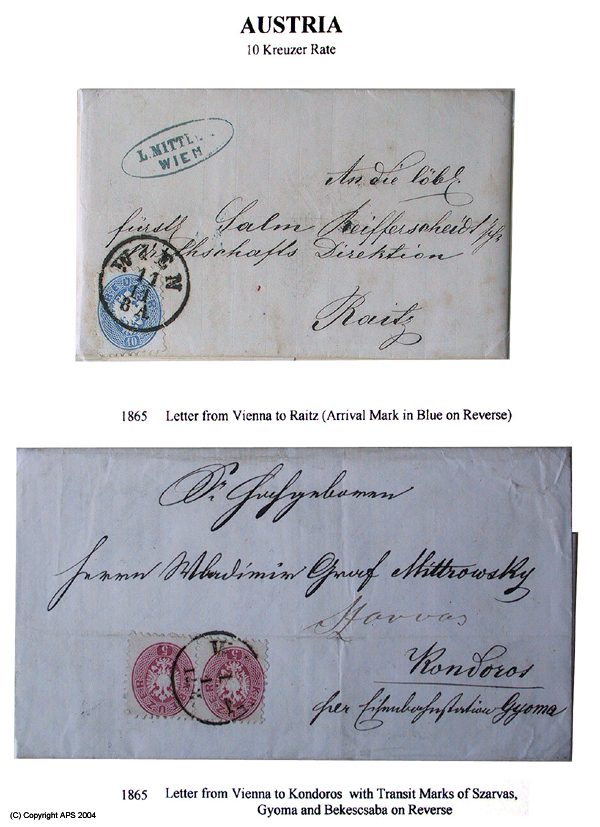 AUSTRIA
10 Kreuzer Rate
WIEN
An die löbl.
fürstl Salm Reifferscheidt'sche
Wirthschafts Direktion
WIEN
11
11
8 A
10
Raitz
1865 Letter from Vienna to Raitz (Arrival Mark in Blue on Reverse)
Sr Hochgeboren
Herrn Wladimir Graf Mittrowsky
Szarvas
Kondoros
per Eisenbahnstation Gyoma
5
5
1865 Letter from Vienna to Kondoros with Transit Marks of Szarvas,
Gyoma and Bekescsaba on Reverse
(C) Copyright APS 2004